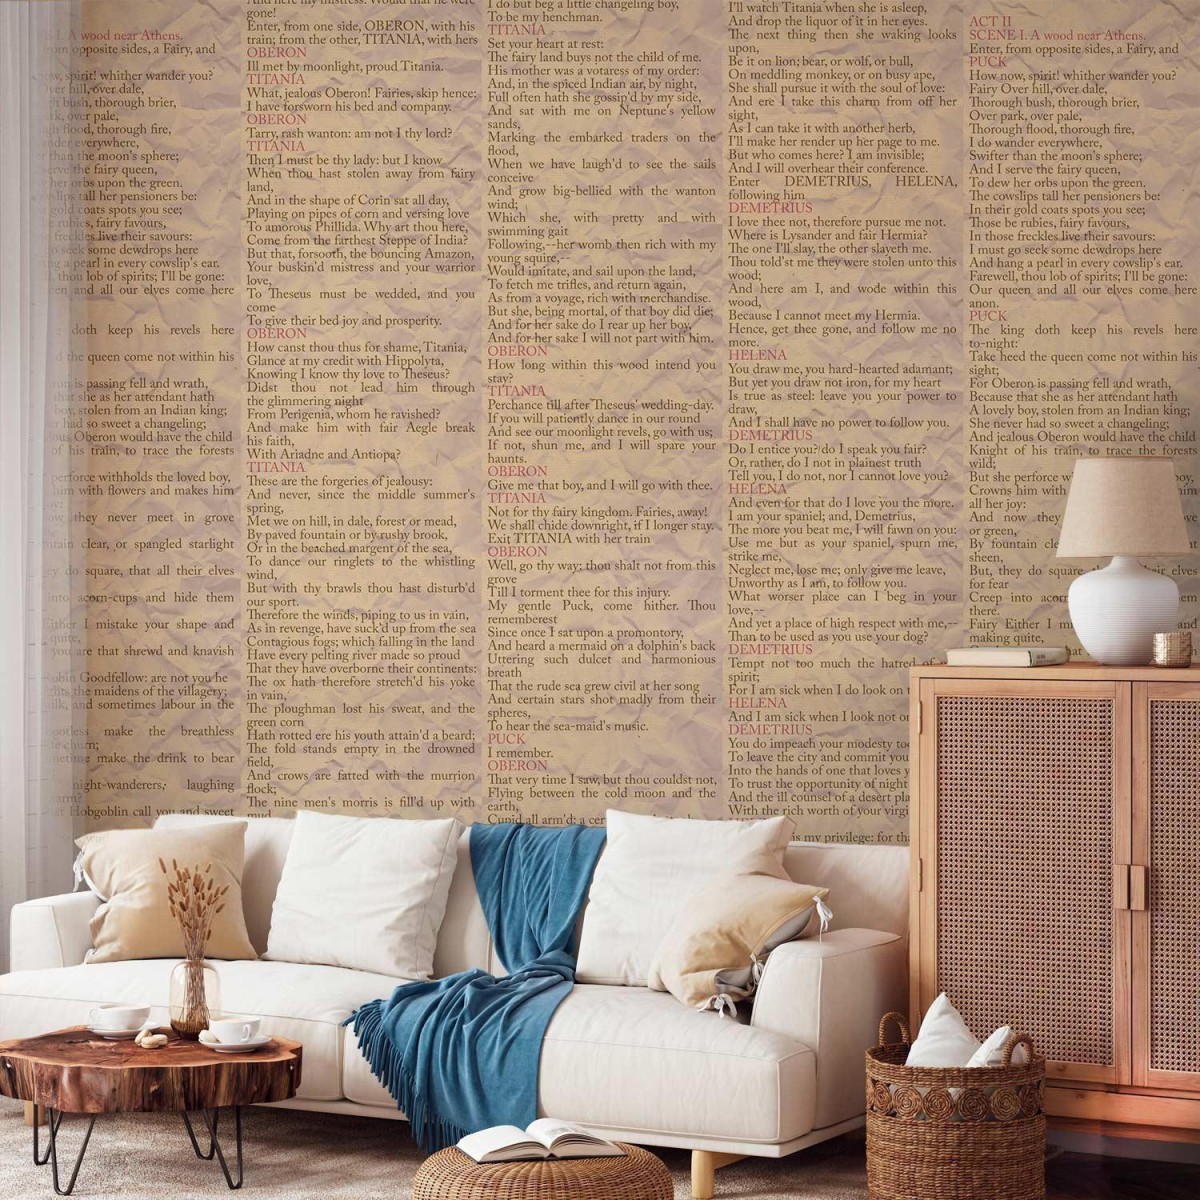 A wood near Athens.
opposite sides, a Fairy, and
spirit! whither wander you?
hill, over dale,
bush, thorough brier,
over pale,
flood, thorough fire,
everywhere,
than the moon's sphere;
the fairy queen,
orbs upon the green.
tall her pensioners be:
gold coats spots you see;
rubies, fairy favours,
freckles live their savours:
seek some dewdrops here
a pearl in every cowslip's ear.
thou lob of spirits; I'll be gone:
and all our elves come here
doth keep his revels here
the queen come not within his
is passing fell and wrath,
she as her attendant hath
boy, stolen from an Indian king;
had so sweet a changeling;
Oberon would have the child
of his train, to trace the forests
perforce withholds the loved boy,
him with flowers and makes him
they never meet in grove
clear, or spangled starlight
do square, that all their elves
into acorn-cups and hide them
Either I mistake your shape and
quite,
you are that shrewd and knavish
Robin Goodfellow: are not you he
the maidens of the villagery;
and sometimes labour in the
make the breathless
make the drink to bear
night-wanderers, laughing
Hobgoblin call you and sweet
And here my mistress. Would that he were
gone!
Enter, from one side, OBERON, with his
train; from the other, TITANIA, with hers
OBERON
Ill met by moonlight, proud Titania.
TITANIA
What, jealous Oberon! Fairies, skip hence:
I have forsworn his bed and company.
OBERON
Tarry, rash wanton: am not I thy lord?
TITANIA
Then I must be thy lady: but I know
When thou hast stolen away from fairy
land,
And in the shape of Corin sat all day,
Playing on pipes of corn and versing love
To amorous Phillida. Why art thou here,
Come from the farthest Steppe of India?
But that, forsooth, the bouncing Amazon,
Your buskin'd mistress and your warrior
love,
To Theseus must be wedded, and you
come
To give their bed joy and prosperity.
OBERON
How canst thou thus for shame, Titania,
Glance at my credit with Hippolyta,
Knowing I know thy love to Theseus?
Didst thou not lead him through
the glimmering night
From Perigenia, whom he ravished?
And make him with fair Aegle break
his faith,
With Ariadne and Antiopa?
TITANIA
These are the forgeries of jealousy:
And never, since the middle summer's
spring,
Met we on hill, in dale, forest or mead,
By paved fountain or by rushy brook,
Or in the beached margent of the sea,
To dance our ringlets to the whistling
wind,
But with thy brawls thou hast disturb'd
our sport.
Therefore the winds, piping to us in vain,
As in revenge, have suck'd up from the sea
Contagious fogs; which falling in the land
Have every pelting river made so proud
That they have overborne their continents:
The ox hath therefore stretch'd his yoke
in vain,
The ploughman lost his sweat, and the
green corn
Hath rotted ere his youth attain'd a beard;
The fold stands empty in the drowned
field,
And crows are fatted with the murrion
flock;
The nine men's morris is fill'd up with
mud,
I do but beg a little changeling boy,
To be my henchman.
TITANIA
Set your heart at rest:
The fairy land buys not the child of me.
His mother was a votaress of my order:
And, in the spiced Indian air, by night,
Full often hath she gossip'd by my side,
And sat with me on Neptune's yellow
sands,
Marking the embarked traders on the
flood,
When we have laugh'd to see the sails
conceive
And grow big-bellied with the wanton
wind;
Which she, with pretty and with
swimming gait
Following,--her womb then rich with my
young squire,--
Would imitate, and sail upon the land,
To fetch me trifles, and return again,
As from a voyage, rich with merchandise.
But she, being mortal, of that boy did die;
And for her sake do I rear up her boy,
And for her sake I will not part with him.
OBERON
How long within this wood intend you
stay?
TITANIA
Perchance till after Theseus' wedding-day.
If you will patiently dance in our round
And see our moonlight revels, go with us;
If not, shun me, and I will spare your
haunts.
OBERON
Give me that boy, and I will go with thee.
TITANIA
Not for thy fairy kingdom. Fairies, away!
We shall chide downright, if I longer stay.
Exit TITANIA with her train
OBERON
Well, go thy way: thou shalt not from this
grove
Till I torment thee for this injury.
My gentle Puck, come hither. Thou
rememberest
Since once I sat upon a promontory,
And heard a mermaid on a dolphin's back
Uttering such dulcet and harmonious
breath
That the rude sea grew civil at her song
And certain stars shot madly from their
spheres,
To hear the sea-maid's music.
PUCK
I remember.
OBERON
That very time I saw, but thou couldst not,
Flying between the cold moon and the
earth,
Cupid all arm'd: a
I'll watch Titania when she is asleep,
And drop the liquor of it in her eyes.
The next thing then she waking looks
upon,
Be it on lion, bear, or wolf, or bull,
On meddling monkey, or on busy ape,
She shall pursue it with the soul of love:
And ere I take this charm from off her
sight,
As I can take it with another herb,
I'll make her render up her page to me.
But who comes here? I am invisible;
And I will overhear their conference.
Enter DEMETRIUS, HELENA,
following him
DEMETRIUS
I love thee not, therefore pursue me not.
Where is Lysander and fair Hermia?
The one I'll slay, the other slayeth me.
Thou told'st me they were stolen unto this
wood;
And here am I, and wode within this
wood,
Because I cannot meet my Hermia.
Hence, get thee gone, and follow me no
more.
HELENA
You draw me, you hard-hearted adamant;
But yet you draw not iron, for my heart
Is true as steel: leave you your power to
draw,
And I shall have no power to follow you.
DEMETRIUS
Do I entice you? do I speak you fair?
Or, rather, do I not in plainest truth
Tell you, I do not, nor I cannot love you?
HELENA
And even for that do I love you the more.
I am your spaniel; and, Demetrius,
The more you beat me, I will fawn on you:
Use me but as your spaniel, spurn me,
strike me,
Neglect me, lose me; only give me leave,
Unworthy as I am, to follow you.
What worser place can I beg in your
love,--
And yet a place of high respect with me,--
Than to be used as you use your dog?
DEMETRIUS
Tempt not too much the hatred of my
spirit;
For I am sick when I do look on
HELENA
And I am sick when I look not on
DEMETRIUS
You do impeach your modesty too
To leave the city and commit you
Into the hands of one that loves y
To trust the opportunity of night
And the ill counsel of a desert pla
With the rich worth of your virgi
is my privilege: for tha
ACT II
SCENE I. A wood near Athens.
Enter, from opposite sides, a Fairy, and
PUCK
How now, spirit! whither wander you?
Fairy Over hill, over dale,
Thorough bush, thorough brier,
Over park, over pale,
Thorough flood, thorough fire,
I do wander everywhere,
Swifter than the moon's sphere;
And I serve the fairy queen,
To dew her orbs upon the green.
The cowslips tall her pensioners be:
In their gold coats spots you see;
Those be rubies, fairy favours,
In those freckles live their savours:
I must go seek some dewdrops here
And hang a pearl in every cowslip's ear.
Farewell, thou lob of spirits; I'll be gone:
Our queen and all our elves come here
anon.
PUCK
The king doth keep his revels here
to-night:
Take heed the queen come not within his
sight;
For Oberon is passing fell and wrath,
Because that she as her attendant hath
A lovely boy, stolen from an Indian king;
She never had so sweet a changeling;
And jealous Oberon would have the child
Knight of his train, to trace the forests
wild;
But she perforce w boy,
Crowns him with him
all her joy:
And now they
or green,
By fountain cle
sheen,
But, they do square their elves
for fear
Creep into acor them
there.
Fairy Either I mi and
making quite,